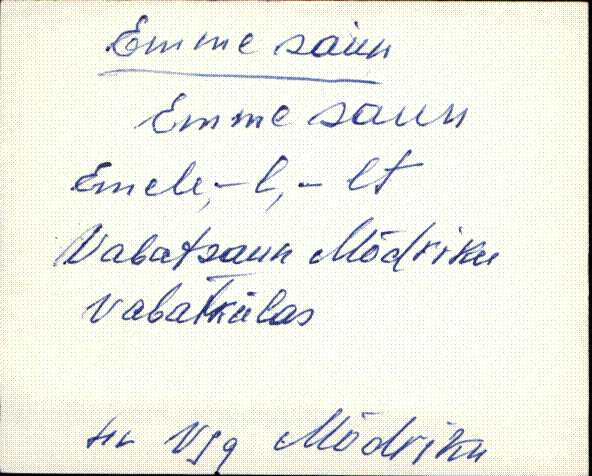 Emme saun
Emme saun
Emele, -l, -lt
Vabatsaun Mõdriku
Vabatkülas
Vjg Mõdriku